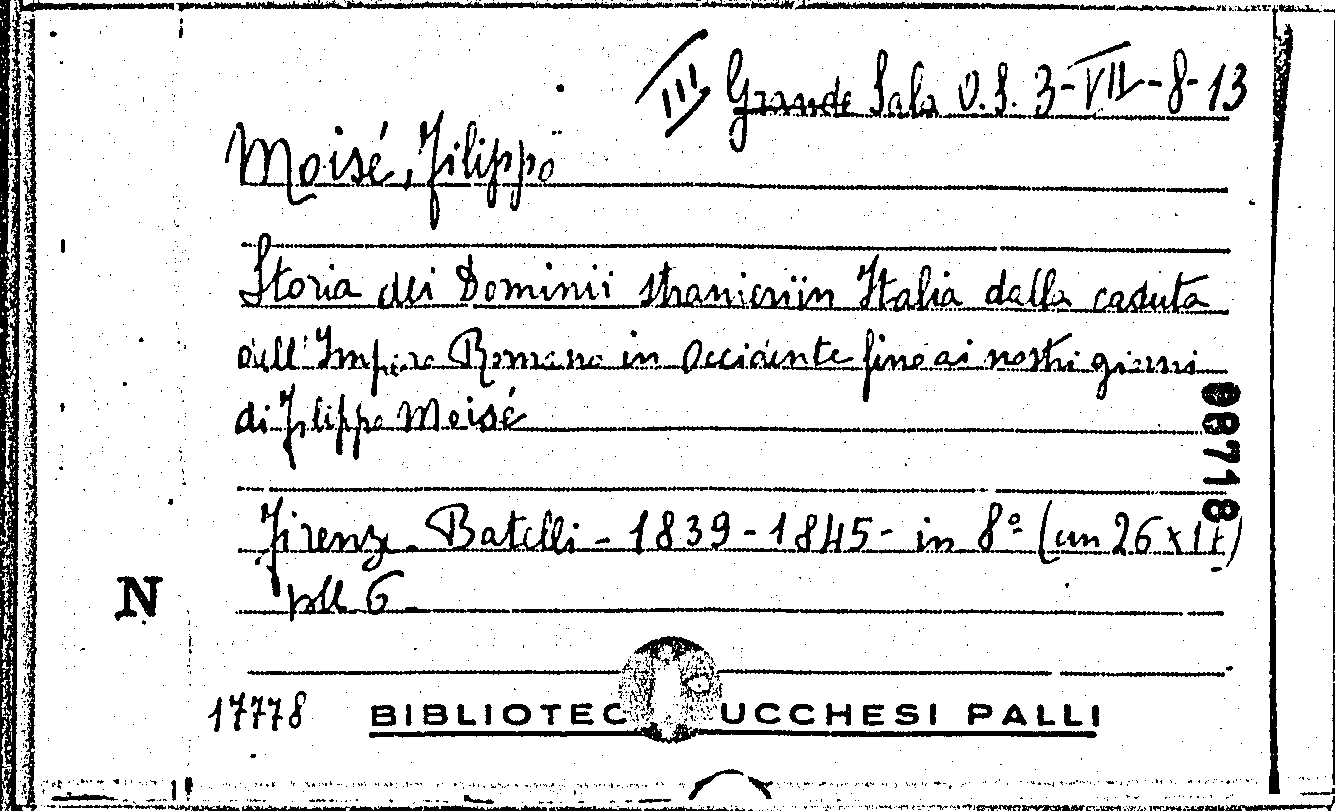 III Grande Sala V.S. 3-VII-8-13
Moisé, Filippo
Storia dei Dominii stranieri in Italia dalla caduta
dell'Impero Romano in Occidente fino ai nostri giorni
di Filippo Moisé
08718
Firenze - Batelli - 1839-1845- in 8º (cm 26x17)
voll. 6-
N
17778 BIBLIOTEC UCCHESI PALLI